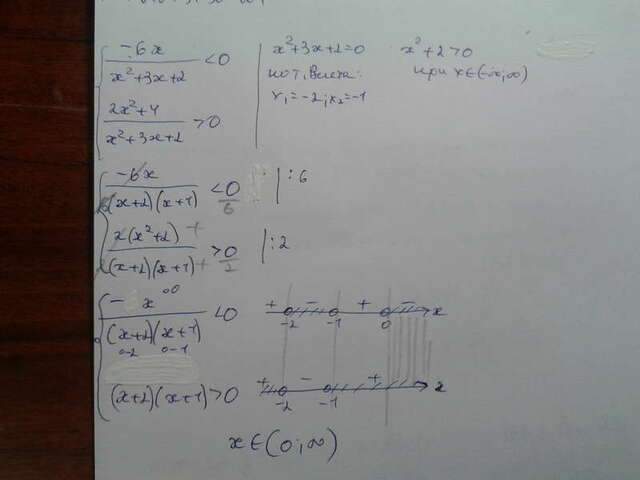 -6x / x²+3x+2 <0
2x²+4 / x²+3x+2 >0
x²+3x+2=0
по т. Виета:
x₁=-2; x₂=-1
x²+2>0
при x∈(-∞;∞)
-6x / (x+2)(x+1) <0/6 |:6
2(x²+2) + / (x+2)(x+1) + >0/2 |:2
- x / (x+2)(x+1) <0
0 -2 -1
+ - + - x
-2 -1 0
(x+2)(x+1)>0
+ - + x
-2 -1
x∈(0;∞)